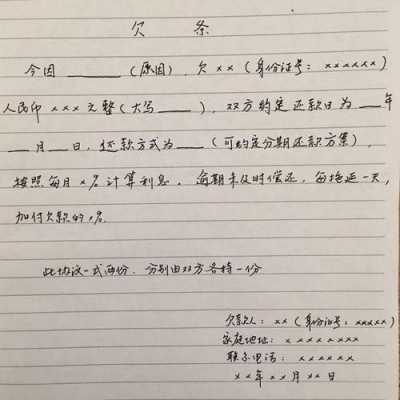 欠 条
今因______(原因),欠××(身份证号:××××××)
人民币×××元整(大写____),双方约定还款日为___年
___月___日,还款方式为___(可约定分期还款方案),
按照每月×%计算利息。逾期未及时偿还,每拖延一天,
加付欠款的×%.
此协议一式两份.分别由双方各持一份
欠款人:××(身份证号:×××××)
家庭地址:××××××××
联系电话:××××××
××年××月××日